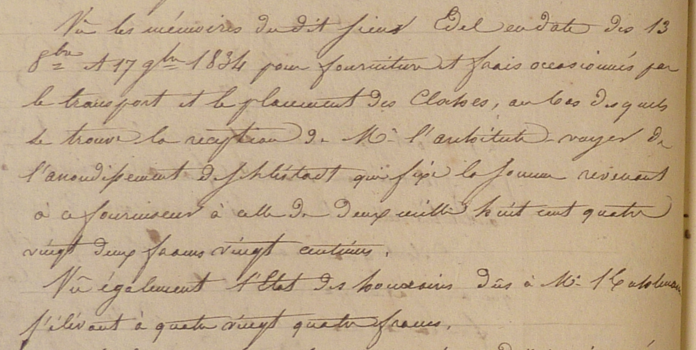 Vu les mémoires du dit sieur Edel en date des 13
8bre et 17 9bre 1834 pour fourniture et frais occasionnés par
le transport et le placement des Cloches, au bas desquels
se trouve la réception de Mr l'architecte voyer de
l'arrondissement de Schlestadt qui fixe la somme revenant
à ce fournisseur à celle de deux mille huit cent quatre
vingt deux francs vingt centimes.
Vu également l'Etat des honoraires dûs à Mr
s'élévant à quatre vingt quatre francs.